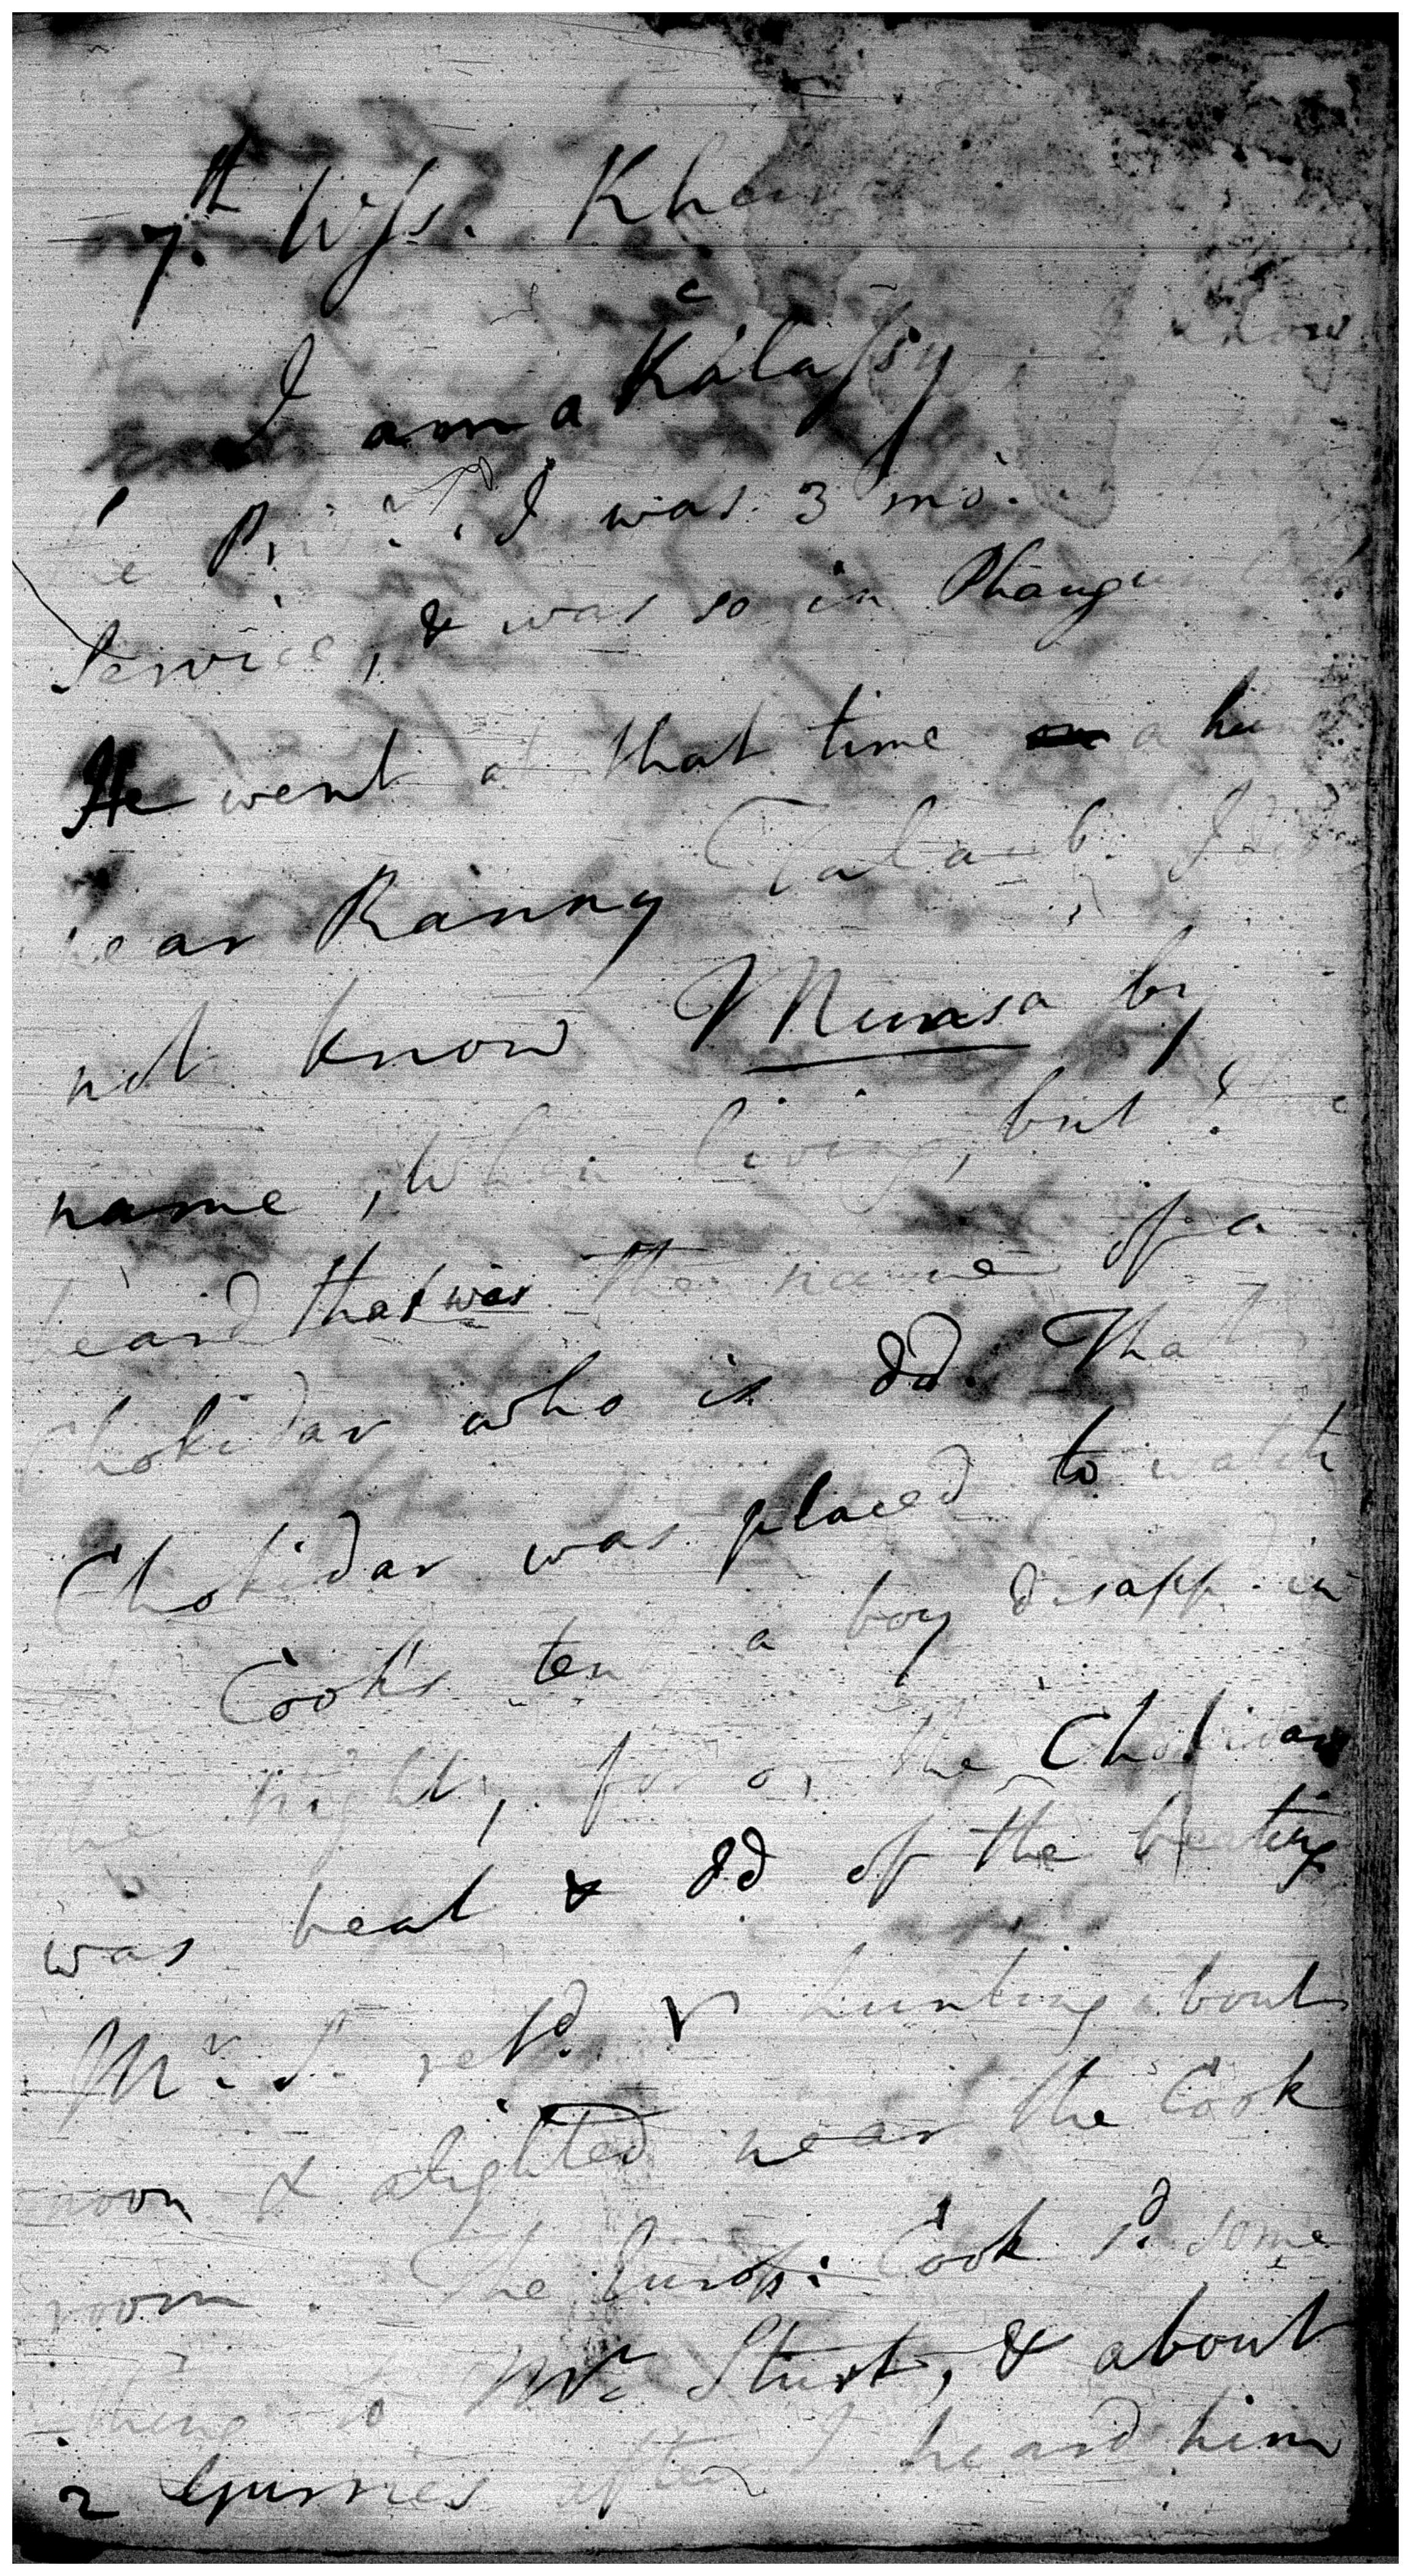 7th. Wss. Khe
I am a Kalassy know
the P. I was 3 mo.
Service, & was so in Phaugun
He went at that time a hun
near Ranny Talaub. I do
not know Munsa by
name, when living, but I have
heard that was the name of a
Chokidar who is dd. That
Chokidar was placed to watch
Cook's tent a boy disapp. in
the night, for on the Chokidar
was beat & dd of the beating
Mr. S. retd. hunting about
noon & alighted near the Cook
room. The Europ: Cook sd. some
-thing to Mr Sturt, & about
2 Gurries after I heard him